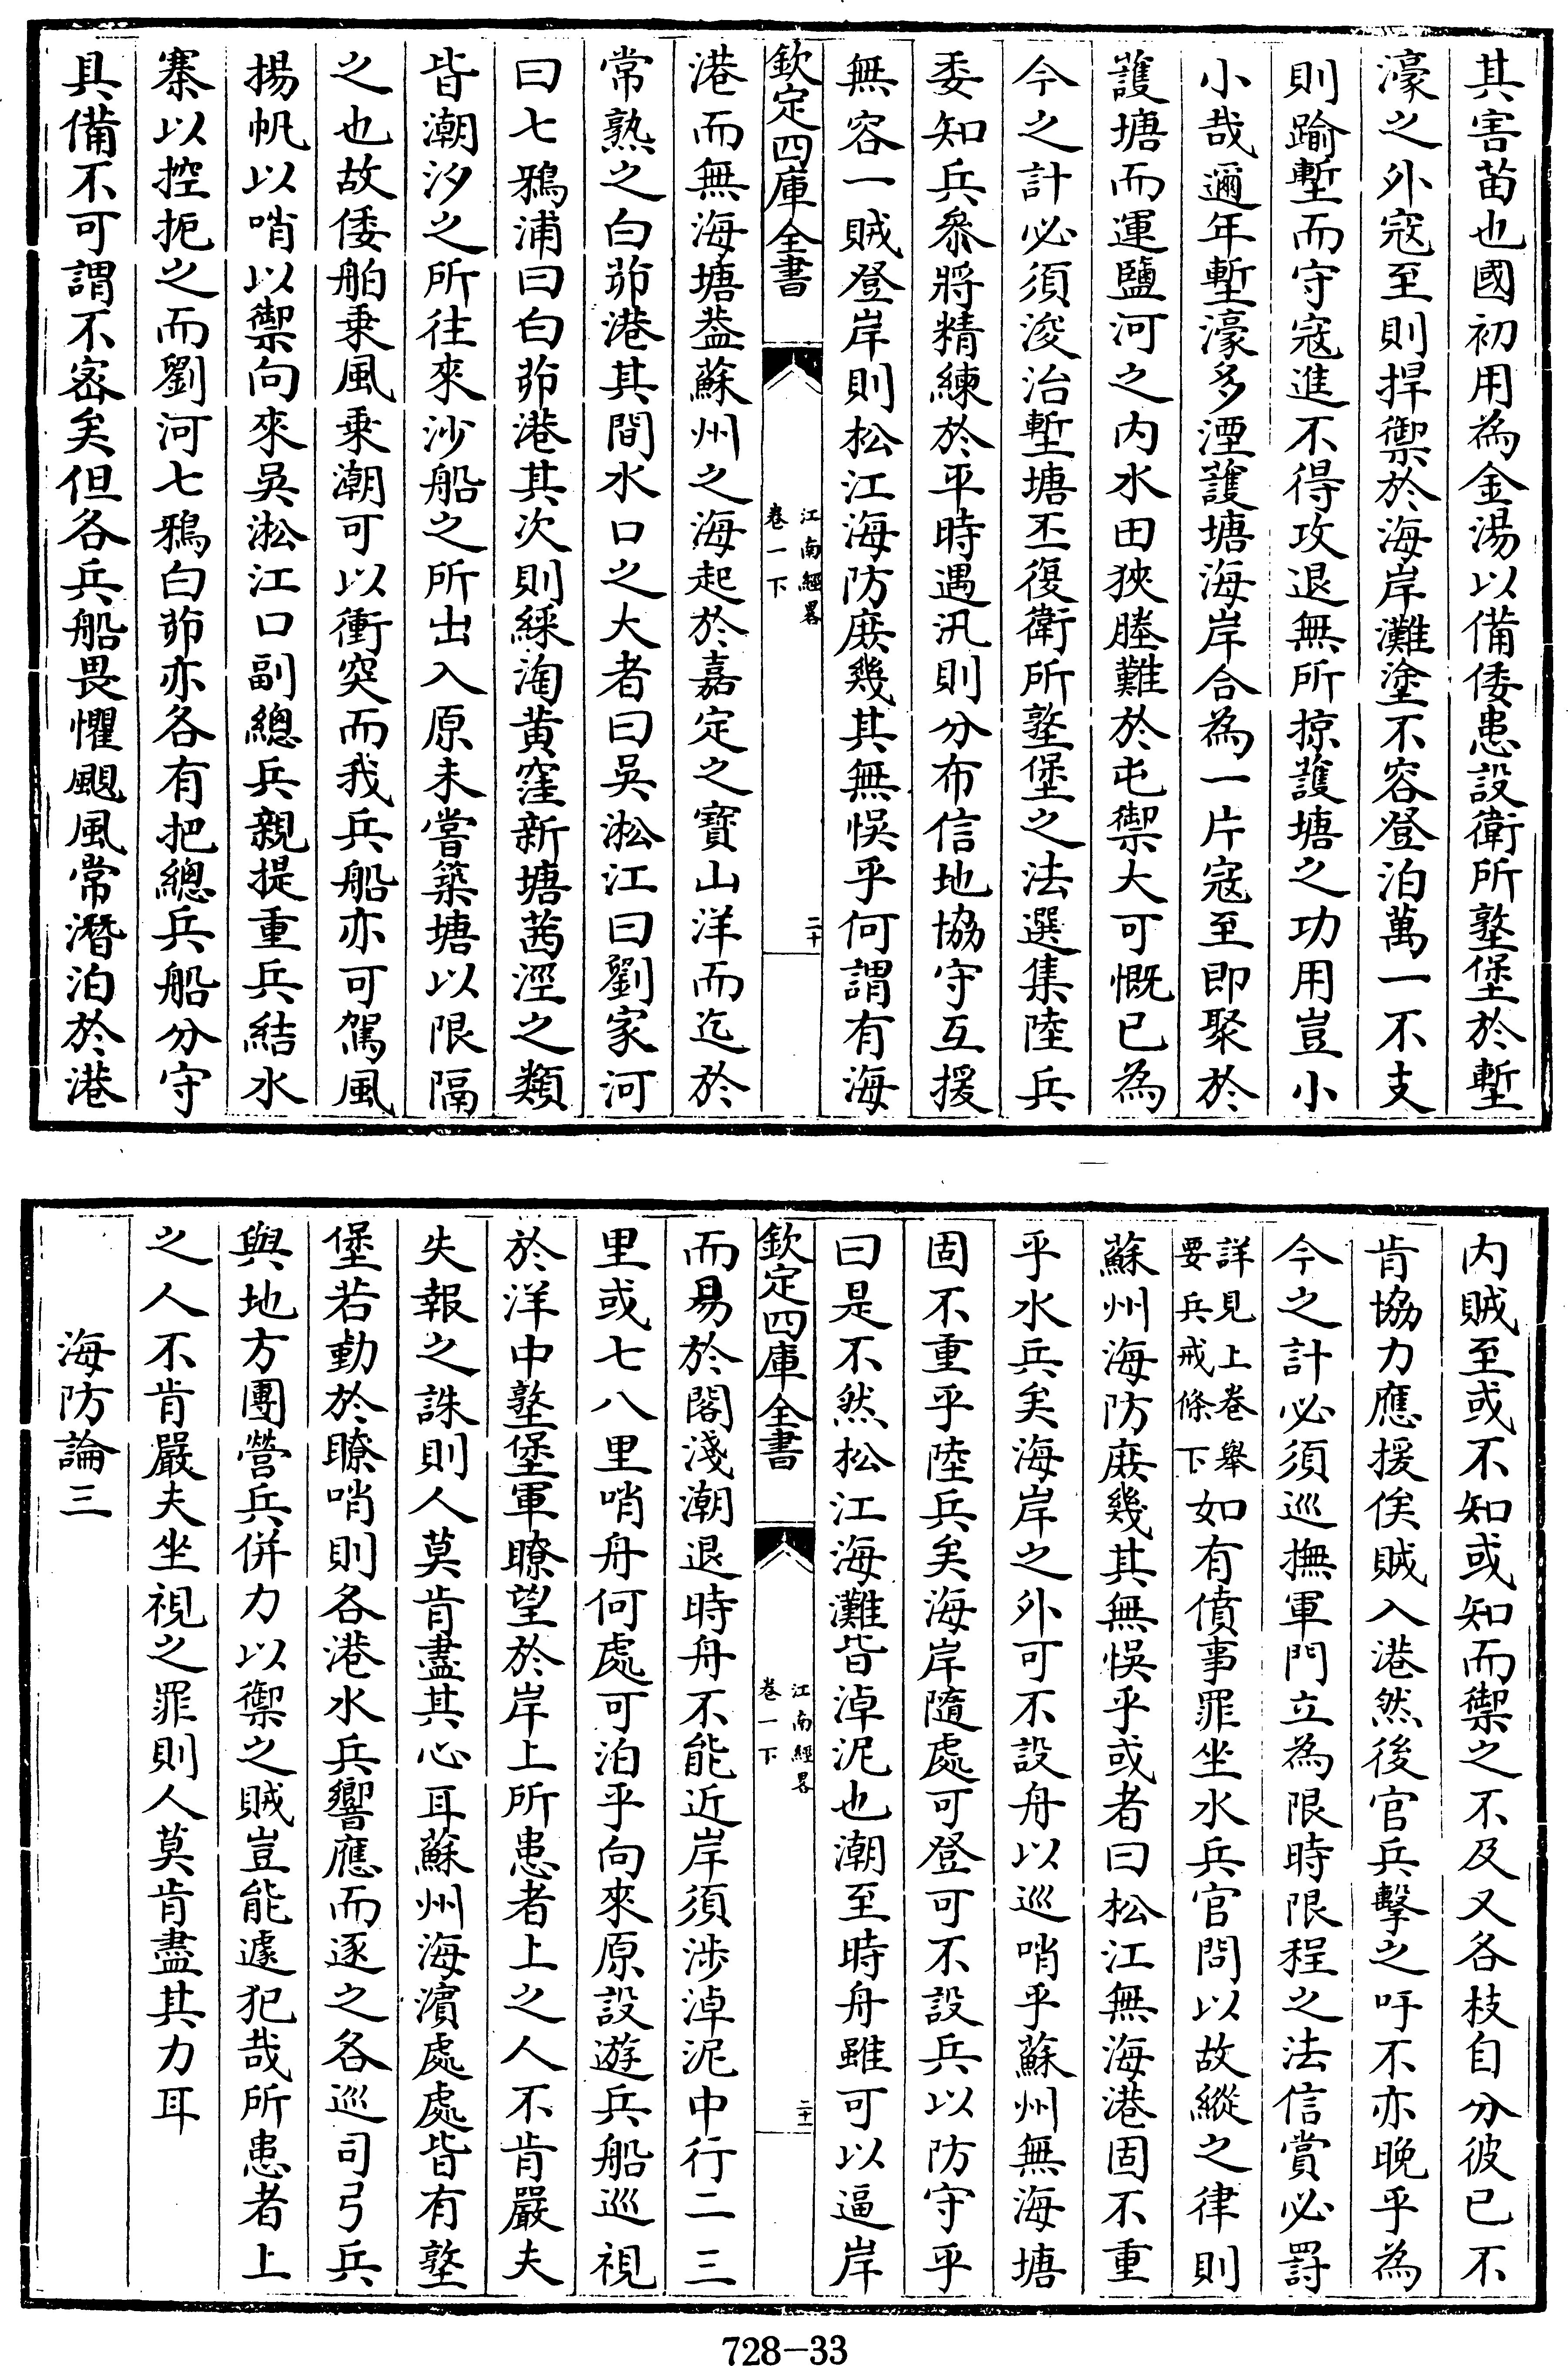 其害苗也國初用為金湯以備倭患設衛所墪堡於塹
濠之外寇至則捍禦於海岸灘塗不容登泊萬一不支
則踰塹而守寇進不得攻退無所掠護塘之功用豈小
小哉邇年塹濠多湮護塘海岸合為一片寇至即聚於
護塘而運鹽河之内水田狹塍難於屯禦大可慨已為
今之計必須浚治塹塘丕復衛所墪堡之法選集陸兵
委知兵叅將精練於平時遇汛則分布信地協守互援
無容一賊登岸則松江海防庶幾其無悞乎何謂有海
欽定四庫全書
江南經畧
卷一下
二十
港而無海塘葢蘇州之海起於嘉定之寶山洋而迄於
常熟之白茆港其間水口之大者曰吳淞江曰劉家河
曰七鴉浦曰白茆港其次則綵淘黄窪新塘茜涇之類
皆潮汐之所往來沙船之所出入原未嘗築塘以限隔
之也故倭舶乗風乗潮可以衝突而我兵船亦可駕風
揚帆以哨以禦向來吳淞江口副總兵親提重兵結水
寨以控扼之而劉河七鴉白茆亦各有把總兵船分守
具備不可謂不宻矣但各兵船畏懼颶風常潛泊於港
内賊至或不知或知而禦之不及又各枝自分彼已不
肯協力應援俟賊入港然後官兵擊之吁不亦晚乎為
今之計必須巡撫軍門立為限時限程之法信賞必罸
詳見上卷舉
要兵戒條下
如有僨事罪坐水兵官問以故縱之律則
蘇州海防庶幾其無悞乎或者曰松江無海港固不重
乎水兵矣海岸之外可不設舟以巡哨乎蘇州無海塘
固不重乎陸兵矣海岸隨處可登可不設兵以防守乎
曰是不然松江海灘皆淖泥也潮至時舟雖可以逼岸
欽定四庫全書
江南經畧
卷一下
二十一
而易於閣淺潮退時舟不能近岸須涉淖泥中行二三
里或七八里哨舟何處可泊乎向來原設遊兵船巡視
於洋中墪堡軍瞭望於岸上所患者上之人不肯嚴夫
失報之誅則人莫肯盡其心耳蘇州海濵處處皆有墪
堡若勤於瞭哨則各港水兵響應而逐之各巡司弓兵
與地方團營兵併力以禦之賊豈能遽犯哉所患者上
之人不肯嚴夫坐視之罪則人莫肯盡其力耳
海防論三
728-33